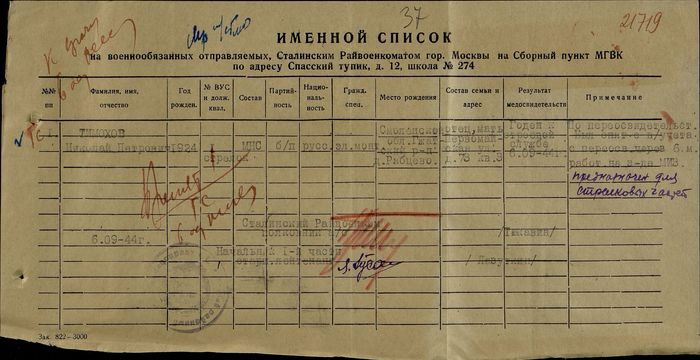 37
21719
ИМЕННОЙ СПИСОК
на военнообязанных отправляемых, Сталинским Райвоенкоматом гор. Москвы на Сборный пункт МГВК
по адресу Спасский тупик, д. 12, школа № 274
№№ пп
Фамилия, имя, отчество
Год рожден.
№ ВУС и долж. квал.
Состав
Партий-ность
Нацио-наль-ность
Гражд. спец.
Место рождения
Состав семьи и адрес
Результат медосвительств
Примечание
1. ТИМОХОВ
Николай Петрович
1924
1
стрелок
МНС
б/п
русс.
эл.монт
Смоленской
обл.Гжат-
ский р-н
д.Рябцево.
отец,мать
Первомай-
ская ул.
д.73 кв.3
Годен к
строевой
службе
6.09-44г.
По переосвидетельст.
с переосв.через 6.м.
работ.на з-да
предназначен для
стрелковых частей
Сталинский Райвоенком
полковник а/с
6.09-44г.
Начальник 1-й части
старш.лейтенант
Зак. 822—3000